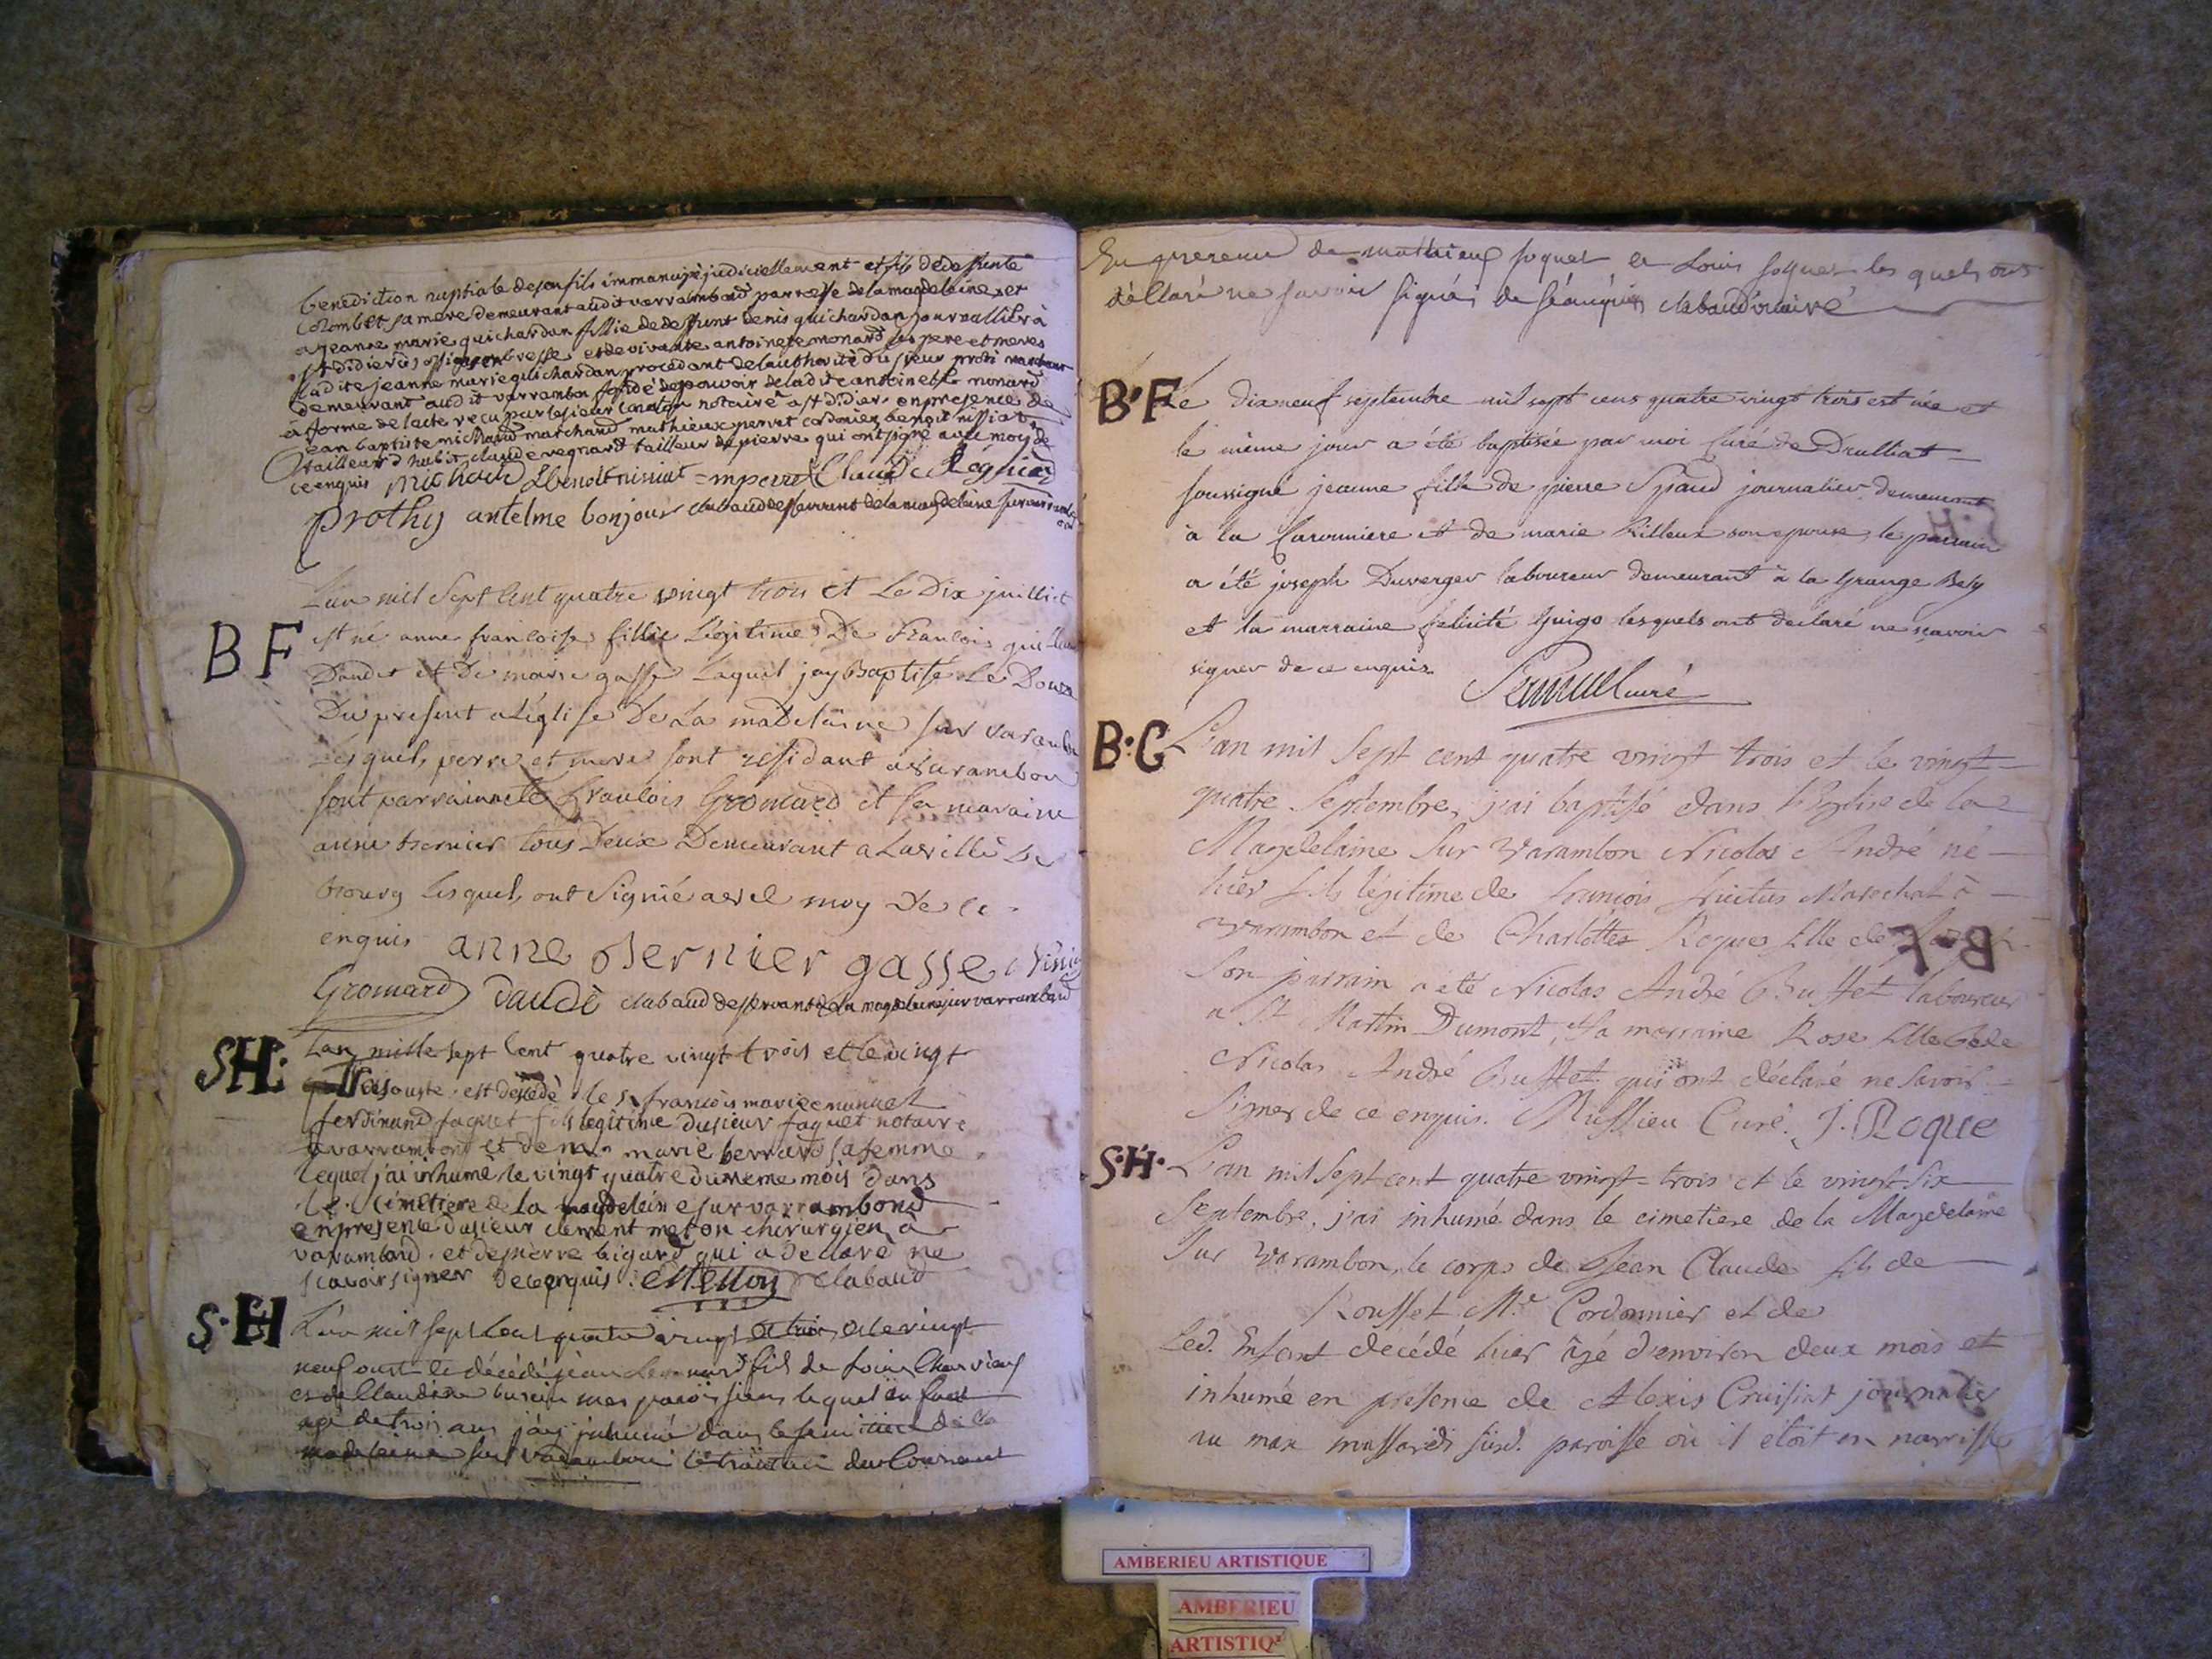 benediction nuptiale de son fils immancipé judiciellement et fils de deffunte
Colombet sa mere demeurant audit varrambond parroisse de la magdeleine et
a jeanne marie guichardan fillie de deffunt denis guichardan journallier à
st didier et de vivante antoinete monard ses pere et meres
ladite jeanne marie guichardan procedant de lauthorité du sieur prothi marchand
demeurant audit varrambon fondé de pouvoir de ladite antoinette monard
à forme de lacte reçu par le sieur notaire a st didier en presence de
jean baptiste michaud marchand mathieux perret cordonier benoit nissiat
tailleur d habit claude regnard tailleur de pierre qui ont signé avec moy de
ce enquis michaud Benoit nisiat mperret Claude Régniard
prothy antelme bonjour clabaud desservant de la magdeleine sur varrambond
L'an mil Sept Cent quatre vingt trois et Le Dix juilliet
B F est né anne francoise fillie Légitime De Francois
Daudet et De marie gasse Laquel jay Baptisé Le Douze
Du present a Léglise De La madelaine sur varambon
Lesquels perre et mere sont residant a varambon
sont parrain Francois Gromard et sa maraine
anne bernier tous Deux Demeurant a La ville De
bourg Lesquels ont Signié avec moy De ce
enquis anne Bernier gasse
Gromard daudè clabaud desservant de la magdeleine sur varrambond
SH: Lan mille sept cent quatre vingt trois et le vingt
trois ouste est décedè le sr françois marie emanuel
ferdinand faquet fils legitime du sieur faquet notaire
a varrambond et de marie berrard sa femme
lequel j'ai inhumè le vingt quatre du meme mois dans
le cimettiere de la magdeleine sur varrambond
en presence du sieur clement metton chirurgien à
varambond et de pierre bigard qui a declaré ne
scavoir signer de ce enquis Metton clabaud
S.H L'an mil sept Cent quatre vingt et trois et le vingt
neuf oust le décédé jean fils de Charvieux
et de Claudine mes paroissiens lequel enfant
agé de trois ans j'ay inhumé dans le semitiere de la
madeleine sur varambon le du Courant
En presence de mathieux soquet et Louis soquet les quels ont
déclaré ne savoir signés de ce enquis clabaud vicaire
B.F Le dixneuf septembre mil sept cens quatre vingt trois est née et
le même jour a été baptisée par moi Curé de Druillat
soussigné jeanne fille de pierre journalier demeurant
à la Caronniere et de marie son epouse, le parrain
a été joseph Duverger laboureur demeurant à la Grange Bely
et la marraine felicité Guigo lesquels ont declaré ne sçavoir
signer de ce enquis. curé
B.G L'an mil sept cent quatre vingt trois et le vingt
quatre Septembre, j'ai baptisé dans l'Eglise de la
Magdelaine sur Varambon Nicolas André né
hier fils légitime de françois Marechal à
Varambon et de Charlotte Roques fille de
B.F
Son parrain a eté Nicolas André Buffet laboureur
a St Martin Dumont, Sa marraine Rose fille de
Nicolas André Buffet qui ont déclaré ne savoir
signer de ce enquis. Missieu Curé. J. Roque
S.H. L'an mil sept cent quatre vingt trois et le vingt six
Septembre, j'ai inhumé dans le cimetiere de la Magdelaine
sur Varambon, le corps de Jean Claude fils de
Rousset Me Cordonnier et de
Led. Enfant decédé hier âgé d'environ deux mois et
inhumé en presence de Alexis Cruisiat journalier
au max paroisse où il etoit en nourrisse
AMBERIEU ARTISTIQUE
AMBERIEU
ARTISTIQ